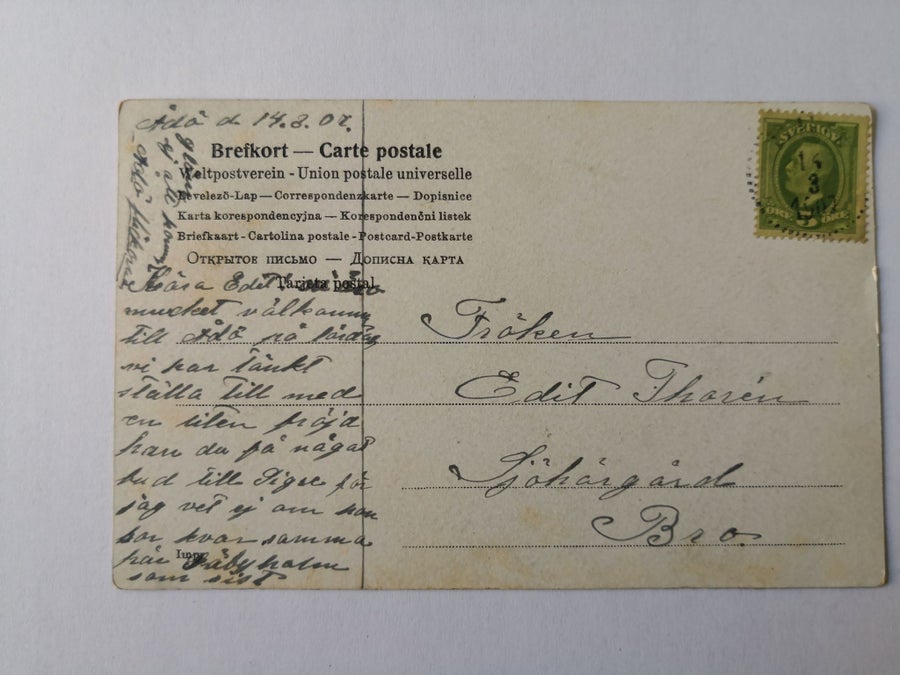 Ådö d. 14.3.07.
Brefkort — Carte postale
Weltpostverein - Union postale universelle
Levelező-Lap — Correspondenzkarte — Dopisnice
Karta korespondencyjna — Korespondenční listek
Briefkaart - Cartolina postale - Postcard - Postkarte
Открытое письмо — Дописна карта
Tarjeta postal
Kära Edit!
mycket välkommen
till Ådö på lördag
vi har tänkt
ställa till med
en liten fröjd
kan du få något
bud till Sigge för
jag vet ej om han
bor kvar samma
på Säbyholm
som sist
glöm
ej att komma
Ådö flickorna
Fröken
Edit Thorén
Bro.
SVERIGE
14
3
1907
ÖRE 5 ÖRE